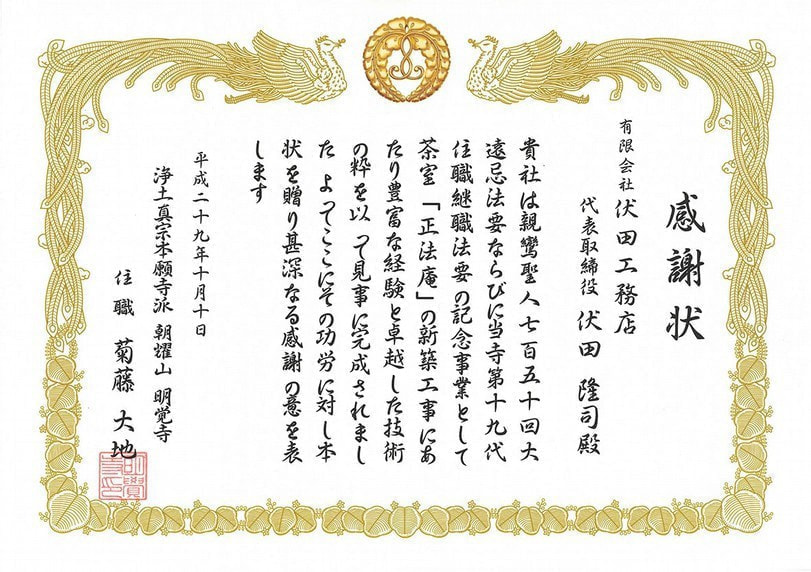 感謝状
有限会社 伏田工務店
代表取締役 伏田 隆司殿
貴社は親鸞聖人七百五十回大
遠忌法要ならびに当寺第十九代
住職継職法要の記念事業として
茶室「正法庵」の新築工事にあ
たり豊富な経験と卓越した技術
の粋を以って見事に完成されまし
た よってここにその功労に対し本
状を贈り甚深なる感謝の意を表
します
平成二十九年十月十日
浄土真宗本願寺派 朝耀山 明覚寺
住職 菊藤 大地